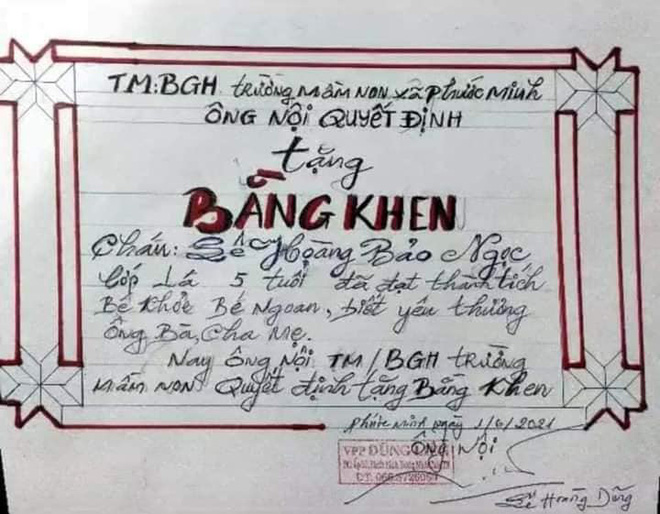 TM:BGH TRƯỜNG MẦM NON XÃ PHƯỚC MINH
ÔNG NỘI QUYẾT ĐỊNH
tặng
BẰNG KHEN
Cháu: Lê Hoàng Bảo Ngọc
Lớp Lá 5 tuổi đã đạt thành tích
Bé Khỏe Bé Ngoan, biết yêu thương
Ông Bà, Cha Mẹ.
Nay ông Nội TM/BGH TRƯỜNG
MẦM NON Quyết định tặng Bằng Khen
Phước Minh ngày 1/6/2021
ÔNG NỘI
VPP DŨNG
Lê Hoàng Dũng